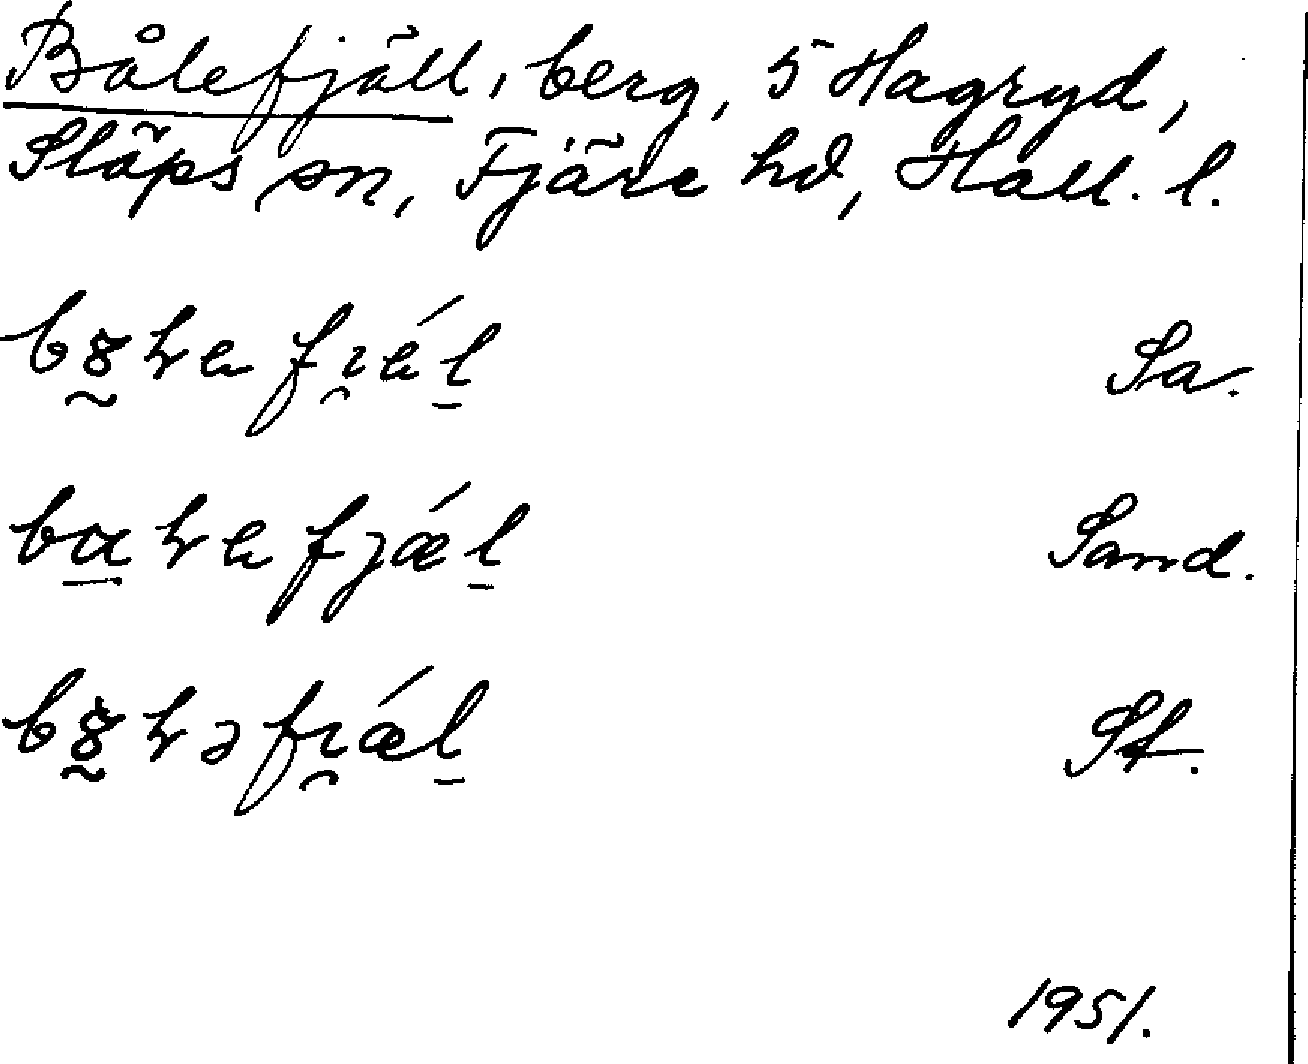 Bålefjäll, berg, 5 Hagryd,
Släps sn, Fjäre hd, Hall. l.
Sa.
Sand.
St.
1951.